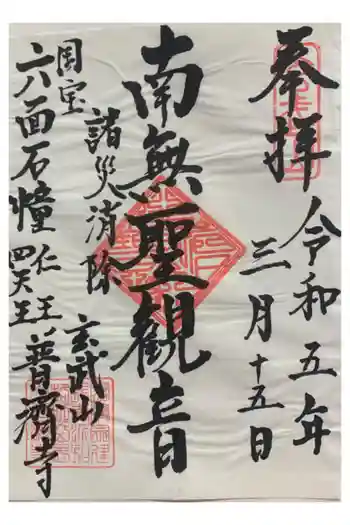 奉拝
令和五年
三月十五日
南無聖観音
諸災消除
国宝
六面石幢
仁王
四天王
玄武山
普濟寺